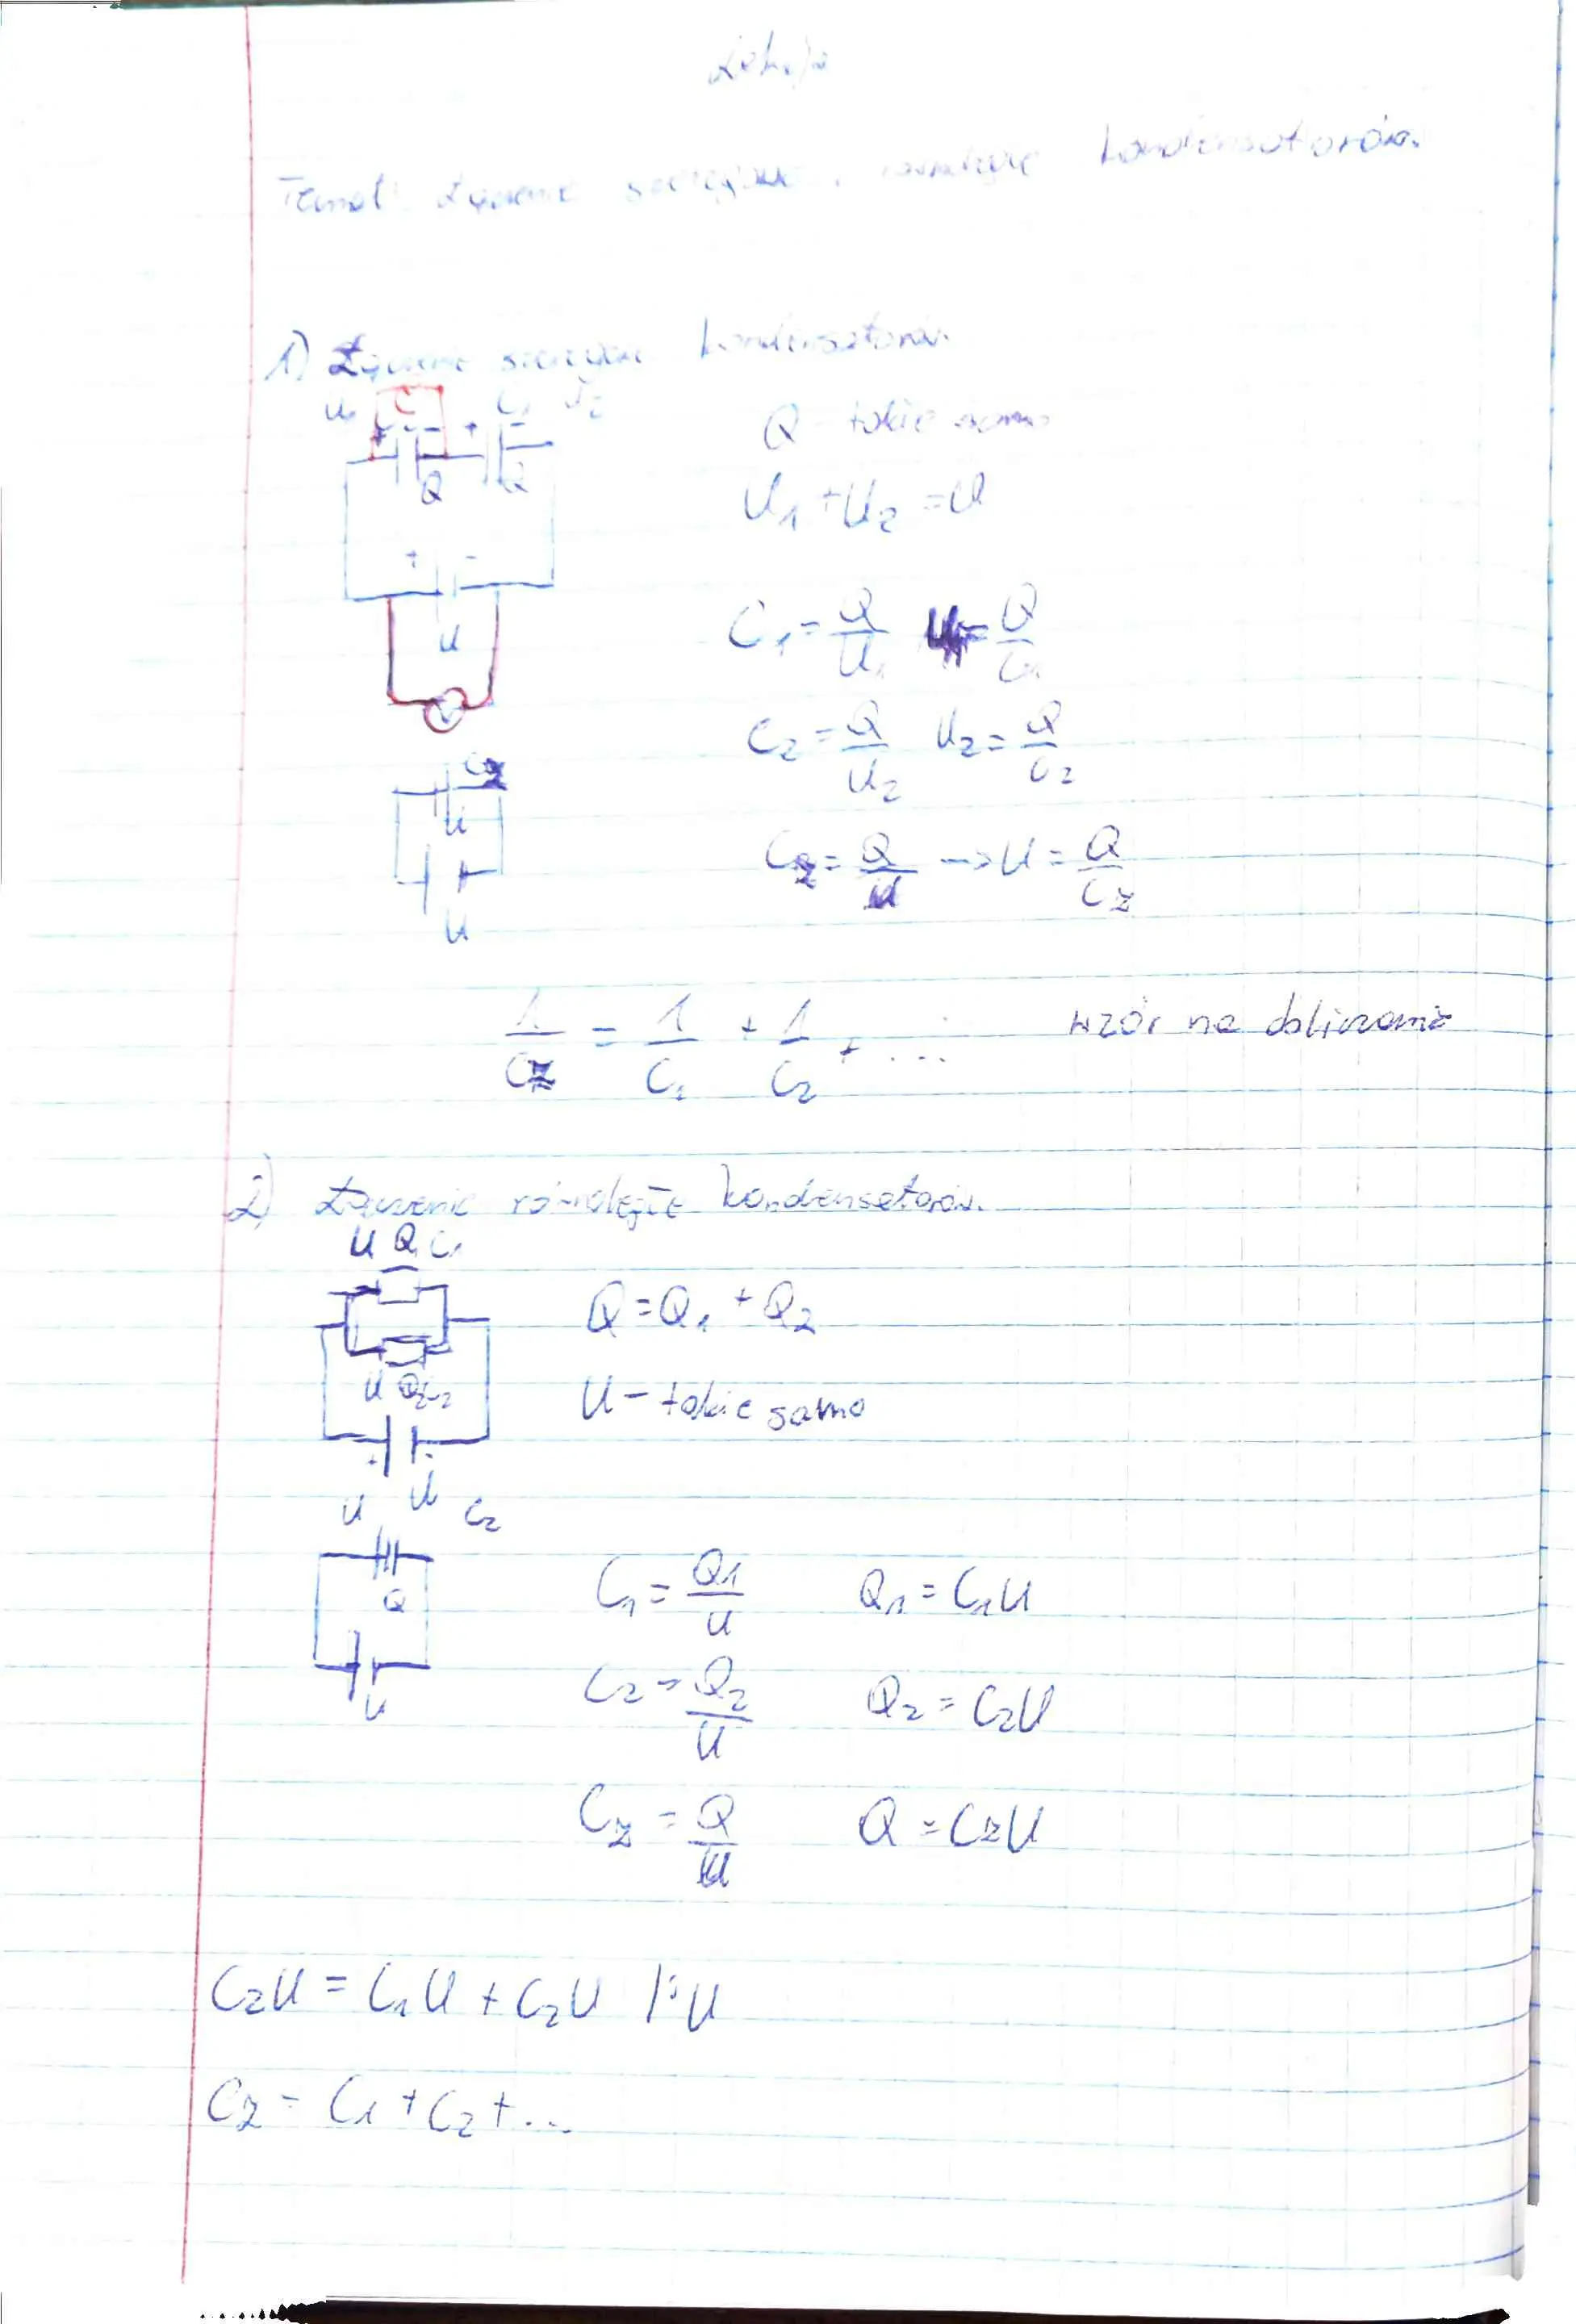 Lekcja
Temat: Łączenie szeregowe i równoległe kondensatorów.
1) Łączenie szeregowe kondensatorów.
U₁ C₁ C₂ U₂
+ - + -
Q Q
Q - takie samo
U₁ + U₂ = U
+ -
U
C₁ = Q/U₁ U₁ = Q/C₁
C₂ = Q/U₂ U₂ = Q/C₂
Cz
U
Cz = Q/U -> U = Q/Cz
U
1/Cz = 1/C₁ + 1/C₂ + ... wzór na obliczanie
2) Łączenie równoległe kondensatorów.
U Q₁ C₁
Q = Q₁ + Q₂
U Q₂ C₂
U - takie samo
+ -
U
U Cz
Q
C₁ = Q₁/U Q₁ = C₁U
C₂ = Q₂/U Q₂ = C₂U
U
Cz = Q/U Q = CzU
CzU = C₁U + C₂U |:U
Cz = C₁ + C₂ + ...